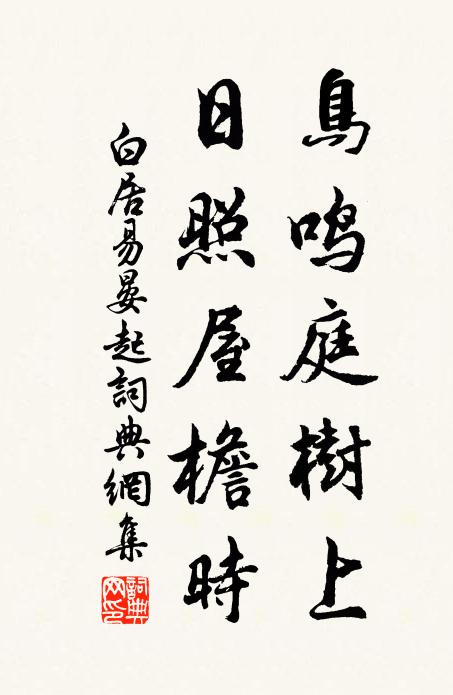 鳥鳴庭樹上
日照屋檐時
白居易晏起詞典網集
詞典网印